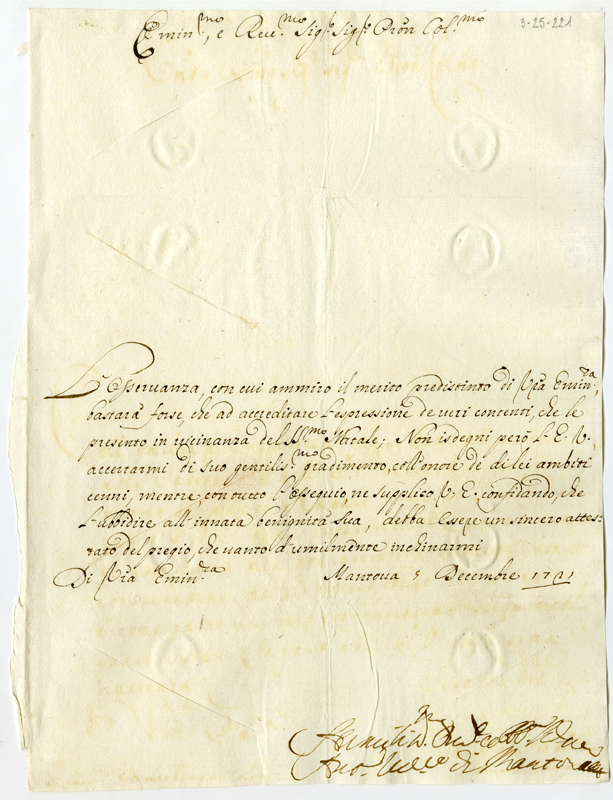 3-25-221
Emin.mo, e Reue.mo Sig.r Sig.r Pron Col.mo
L'Osseruanza, con cui ammiro il merito predistinto di Vra Emin.za,
bastarà forse che ad accreditare l'espressione de ueri contenti, che le
presento in uicinanza del SS.mo Natale; Non isdegni però l'E. V.
accertarmi di suo gentilis.mo gradimento, coll'onore de di lei ambiti
cenni, mentre, con tutto l'Ossequio, ne supplico V. E. confidando, che
l'ubbidire all'innata benignità Sua, debba essere un sincero attes-
tato del pregio, che uanto d'umilmente inchinarmi
Di Vra Emin.za Mantoua 5 Decembre 1721
di Mantoua